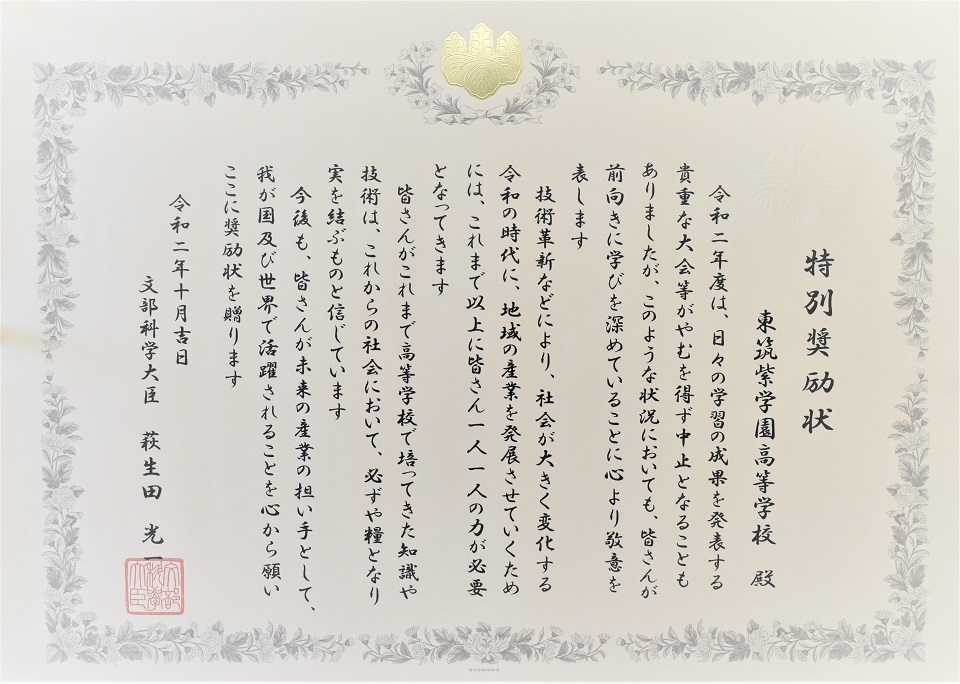 特別奨励状
東筑紫学園高等学校 殿
令和二年度は、日々の学習の成果を発表する
貴重な大会等がやむを得ず中止となることも
ありましたが、このような状況においても、皆さんが
前向きに学びを深めていることに心より敬意を
表します
技術革新などにより、社会が大きく変化する
令和の時代に、地域の産業を発展させていくため
には、これまで以上に皆さん一人一人の力が必要
となってきます
皆さんがこれまで高等学校で培ってきた知識や
技術は、これからの社会において、必ずや糧となり
実を結ぶものと信じています
今後も、皆さんが未来の産業の担い手として、
我が国及び世界で活躍されることを心から願い
ここに奨励状を贈ります
令和二年十月吉日
文部科学大臣 萩生田 光一
文部科学大臣